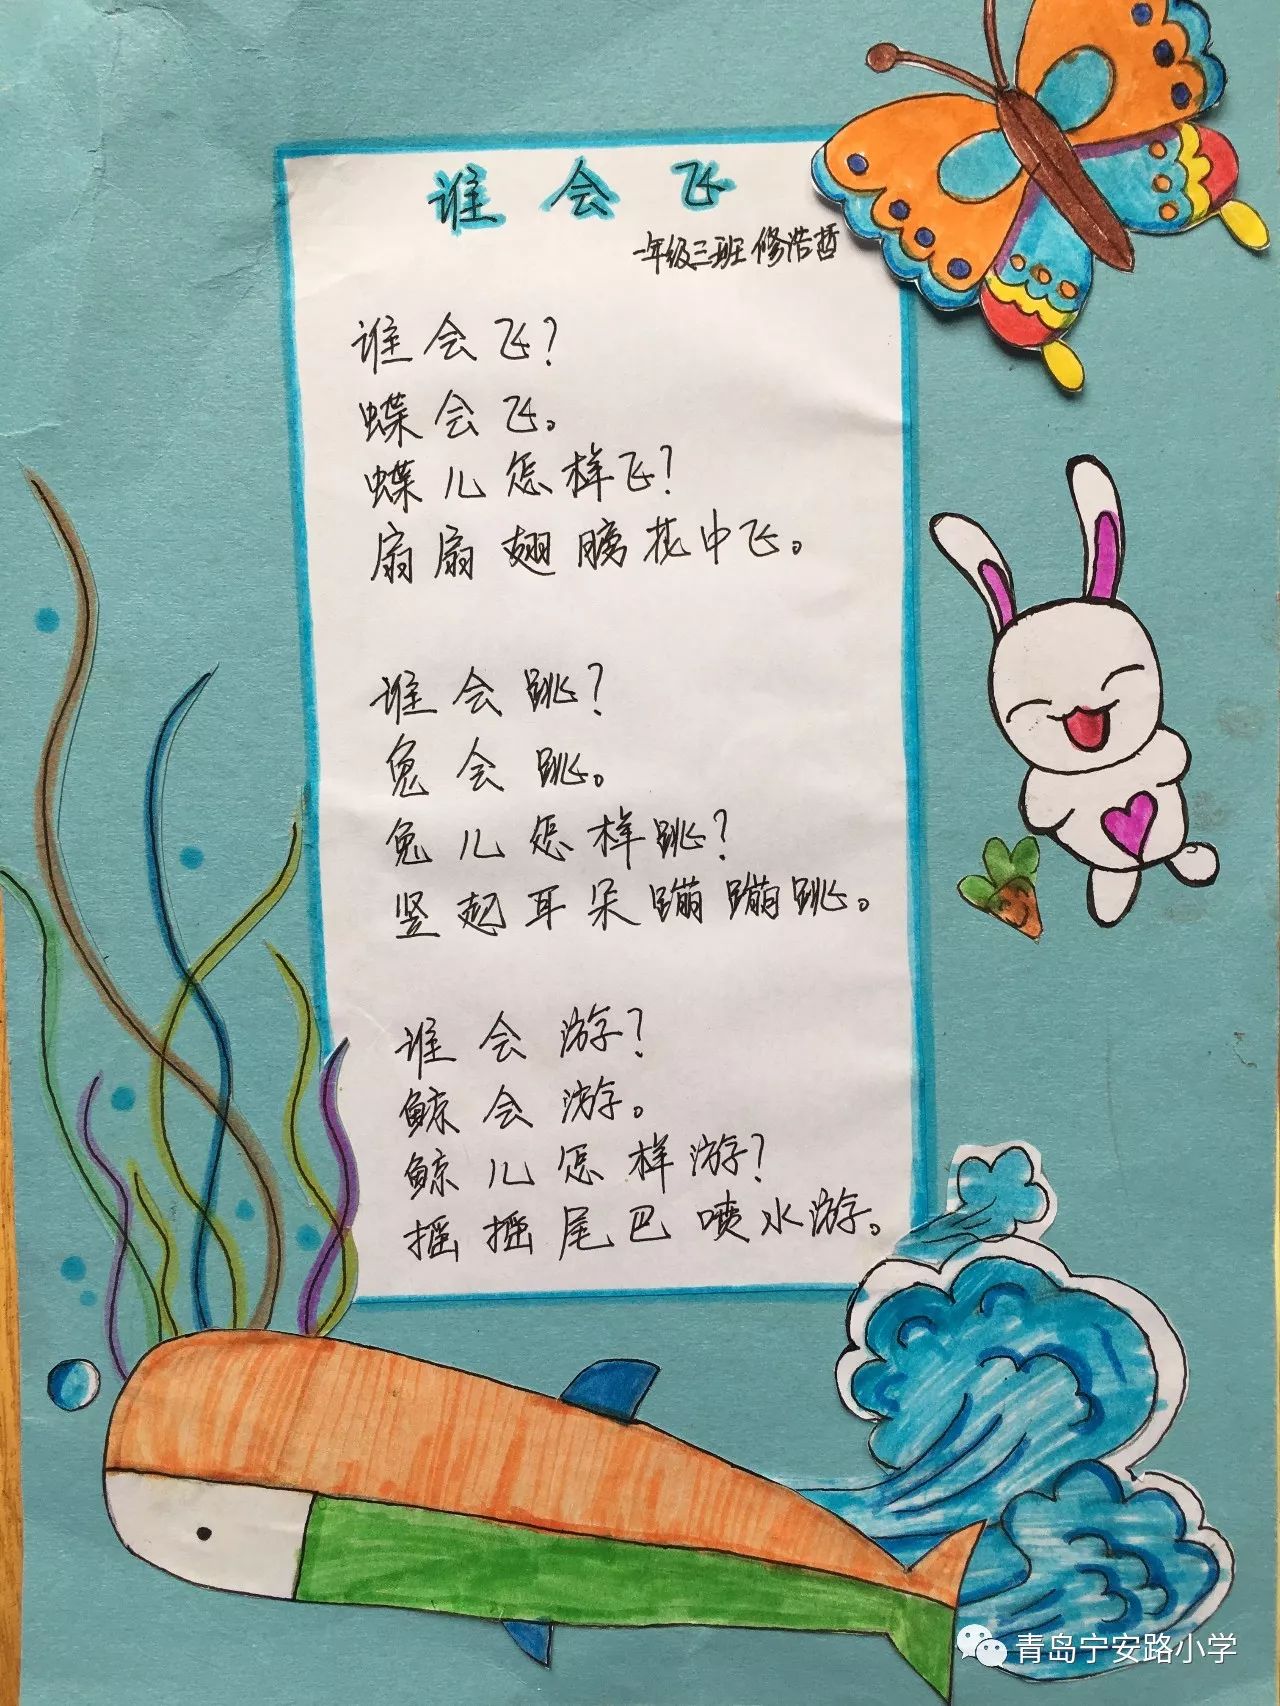 谁会飞
一年级三班 修浩哲
谁会飞？
蝶会飞。
蝶儿怎样飞？
扇扇翅膀花中飞。
谁会跳？
兔会跳。
兔儿怎样跳？
竖起耳朵蹦蹦跳。
谁会游？
鲸会游。
鲸儿怎样游？
摇摇尾巴喷水游。
青岛宁安路小学